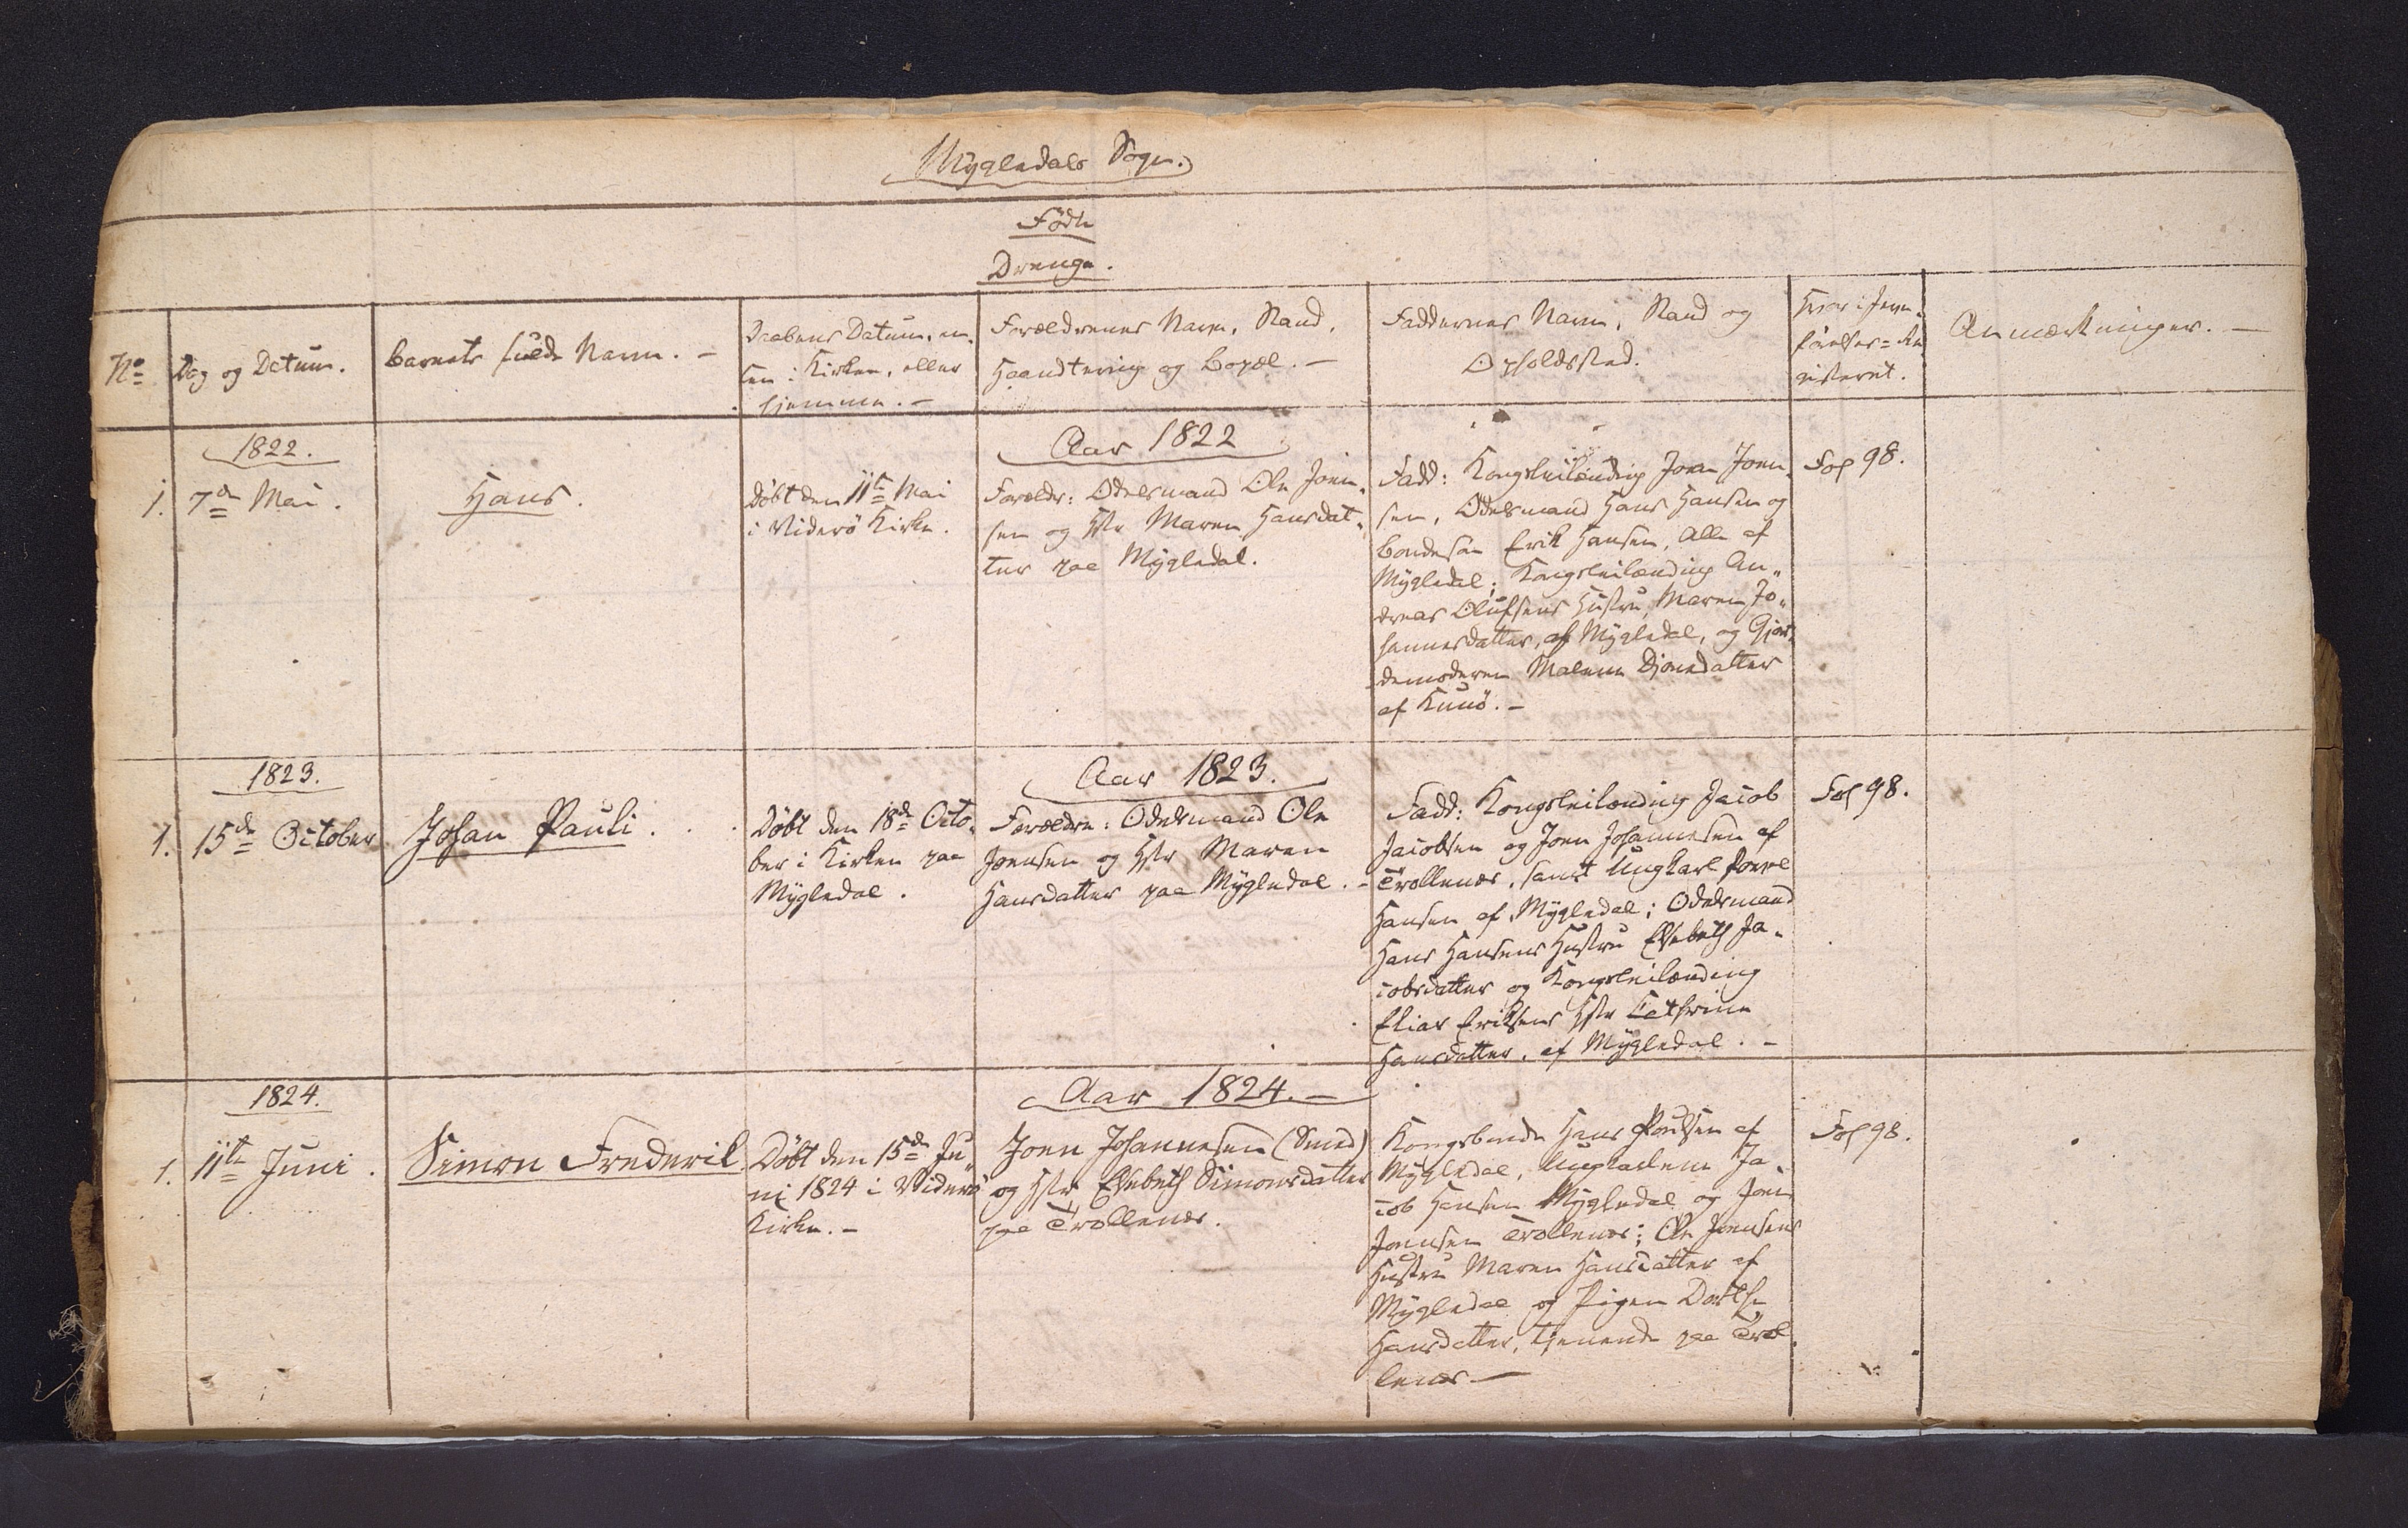 Mygledals Sogn.
Fødte
Drenge.
No
Dag og Datum.
Barnets fulde Navn. -
Daabens Datum, en-
ten i Kirken, eller
hjemme. -
Forældrenes Navn, Stand,
Haandtering og Bopæl. -
Faddernes Navn, Stand og
Opholdssted.
Hvor i Jevn-
førelses-Re
gisteret.
Anmærkninger. -
1822.
Aar 1822
1.
7de Mai.
Hans.
Døbt den 11te Mai
i Viderø Kirke.
Forældr: Odelsmand Ole Joen-
sen og Hstr Maren Hansdat-
ter paa Mygledal.
Fadd: Kongsleilænding Joen Joen-
sen, Odelsmand Hans Hansen og
Bondesøn Erik Hansen, Alle af
Mygledal; Kongsleilænding An-
dreas Olufsens Hustru, Maren Jo-
hannesdatter, af Mygledal, og Gjor-
demoderen Malene Djonedatter
af Kunø. -
Fol 98.
1823.
Aar 1823.
1.
15de October
Johan Pauli.
Døbt den 18de Octo-
ber i Kirken paa
Mygledal.
Forældre: Odelsmand Ole
Joensen og Hstr Maren
Hansdatter paa Mygledal. -
Fadd: Kongsleilænding Jacob
Jacobsen og Joen Johannesen af
Trollenes, samt Ungkarl Povel
Hansen af Mygledal; Odelsmand
Hans Hansens Hustru Elsebeth Ja-
cobsdatter og Kongsleilænding
Elias Eriksens Hstr Cathrine
Hansdatter, af Mygledal. -
Fol 98.
1824.
Aar 1824. -
1.
11te Juni.
Simon Frederik
Døbt den 15de Ju-
ni 1824 i Viderø
Kirke. -
Joen Johannesen (Smed)
og Hstr Elsebeth Simonsdatter
paa Trollenes.
Kongsbonde Hans Poulsen af
Mygledal, Ungkarlene Ja-
cob Hansen Mygledal og Joen
Joensen Trollenes; Ole Joensens
Hustru Maren Hansdatter af
Mygledal og Pigen Dorthe
Hansdatter, tjenende paa Trol-
lenes -
Fol 98.